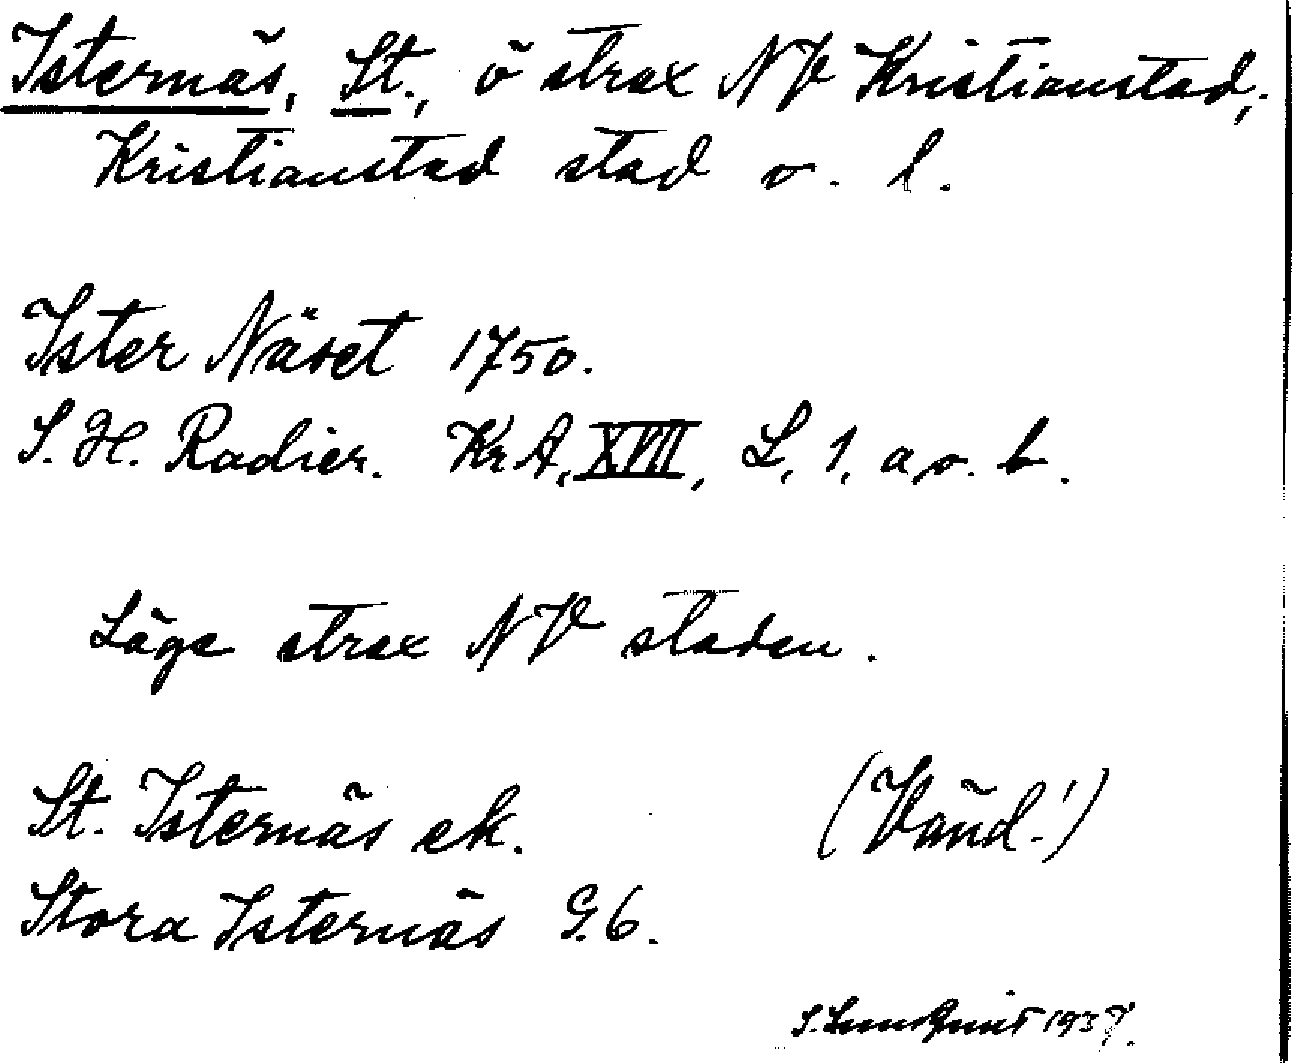 Isternäs, St., ö strax NV Kristianstad,
Kristianstad stad o. l.
Ister Näset 1750.
S. H. Radier. KrA, XVII, L, 1, a o. b.
Läge strax NV staden.
St. Isternäs ek. (Vänd!)
Stora Isternäs G.6.
S. Lundquist 1937.